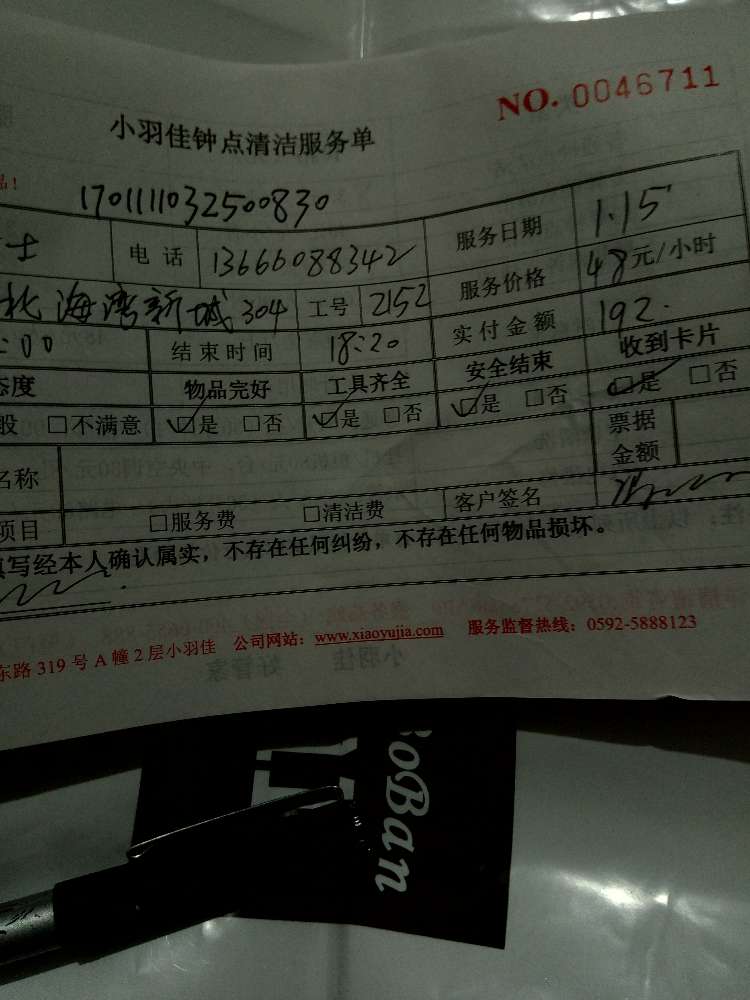 NO. 0046711
小羽佳钟点清洁服务单
品!
1701111032500830
士 电话 13666088342 服务日期 1.15
北海湾新城304 工号 2152 服务价格 48元/小时
:00 结束时间 18:20 实付金额 192.
态度 物品完好 工具齐全 安全结束 收到卡片
般 □不满意 ☑是 □否 ☑是 □否 ☑是 □否 ☑是 □否
名称 票据金额
项目 □服务费 □清洁费 客户签名
填写经本人确认属实,不存在任何纠纷,不存在任何物品损坏。
东路319号A幢2层小羽佳 公司网站:www.xiaoyujia.com 服务监督热线:0592-5888123
BoBan